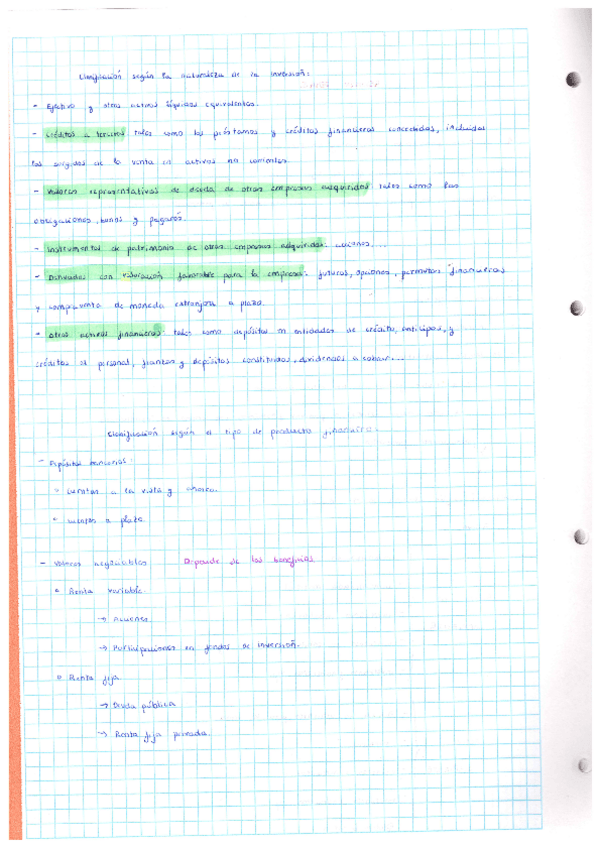 Clasificación según la naturaleza de la inversión:
- Efectivo y otros activos líquidos equivalentes.
- Créditos a terceros tales como los préstamos y créditos financieros concedidos, incluidos
los surgidos de la venta en activos no corrientes.
- Valores representativos de deuda de otras empresas adquiridos tales como las
obligaciones, bonos y pagarés.
- Instrumentos de patrimonio de otras empresas adquiridos: acciones....
- Derivados con valoración favorable para la empresa: futuros, opciones, permutas financieras
y compraventa de moneda extranjera a plazo.
- Otros activos financieros: tales como depósitos en entidades de crédito, anticipos, y
créditos al personal, fianzas y depósitos constituidos, dividendos a cobrar....
Clasificación según el tipo de producto financiero:
- Depósitos bancarios:
cuentas a la vista y ahorro.
cuentas a plazo
- Valores negociables Depende de los beneficios
Renta variable.
→ Acciones.
→ Participaciones en fondos de inversión.
Renta fija
→ Deuda pública
→ Renta fija privada.